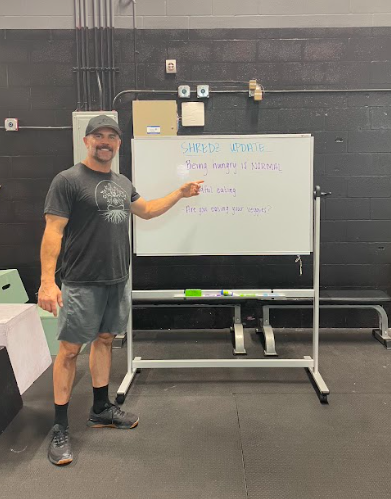 SHREDZ UPDATE...
Being hungry is NORMAL
eating
Are you eating your veggies?